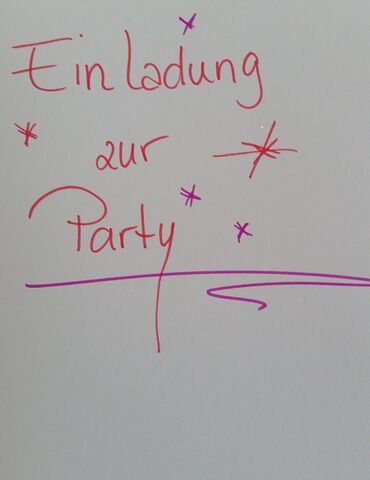 Einladung
zur
Party